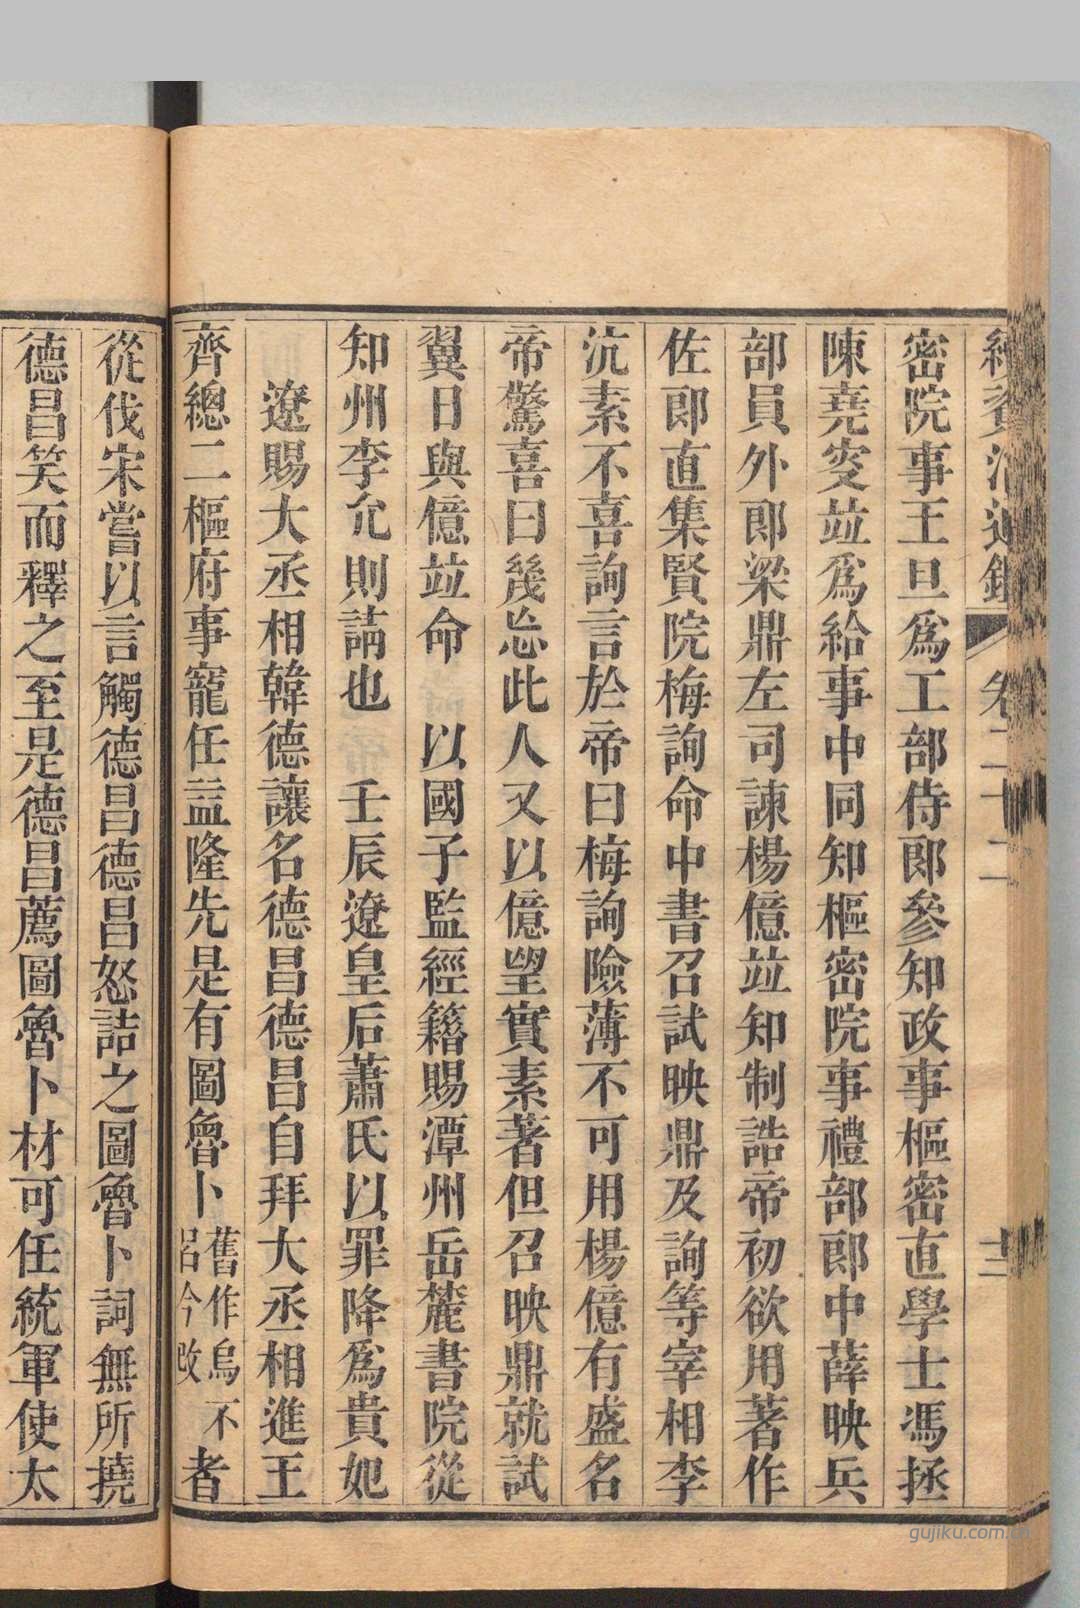 續資治通鑑 卷二十二 十二
密院事王旦爲工部侍郎參知政事樞密直學士馮拯
陳堯叟竝爲給事中同知樞密院事禮部郎中薛映兵
部員外郎梁鼎左司諫楊億竝知制誥帝初欲用著作
佐郎直集賢院梅詢命中書召試映鼎及詢等宰相李
沆素不喜詢言於帝曰梅詢險薄不可用楊億有盛名
帝驚喜曰幾忘此人又以億望實素著但召映鼎就試
翼日與億竝命 以國子監經籍賜潭州岳麓書院從
知州李允則請也 壬辰遼皇后蕭氏以罪降爲貴妃
遼賜大丞相韓德讓名德昌德昌自拜大丞相進王
齊總二樞府事寵任益隆先是有圖魯卜舊作烏不呂今改者
從伐宋嘗以言觸德昌德昌怒詰之圖魯卜詞無所撓
德昌笑而釋之至是德昌薦圖魯卜材可任統軍使太
gujiku.com.cn